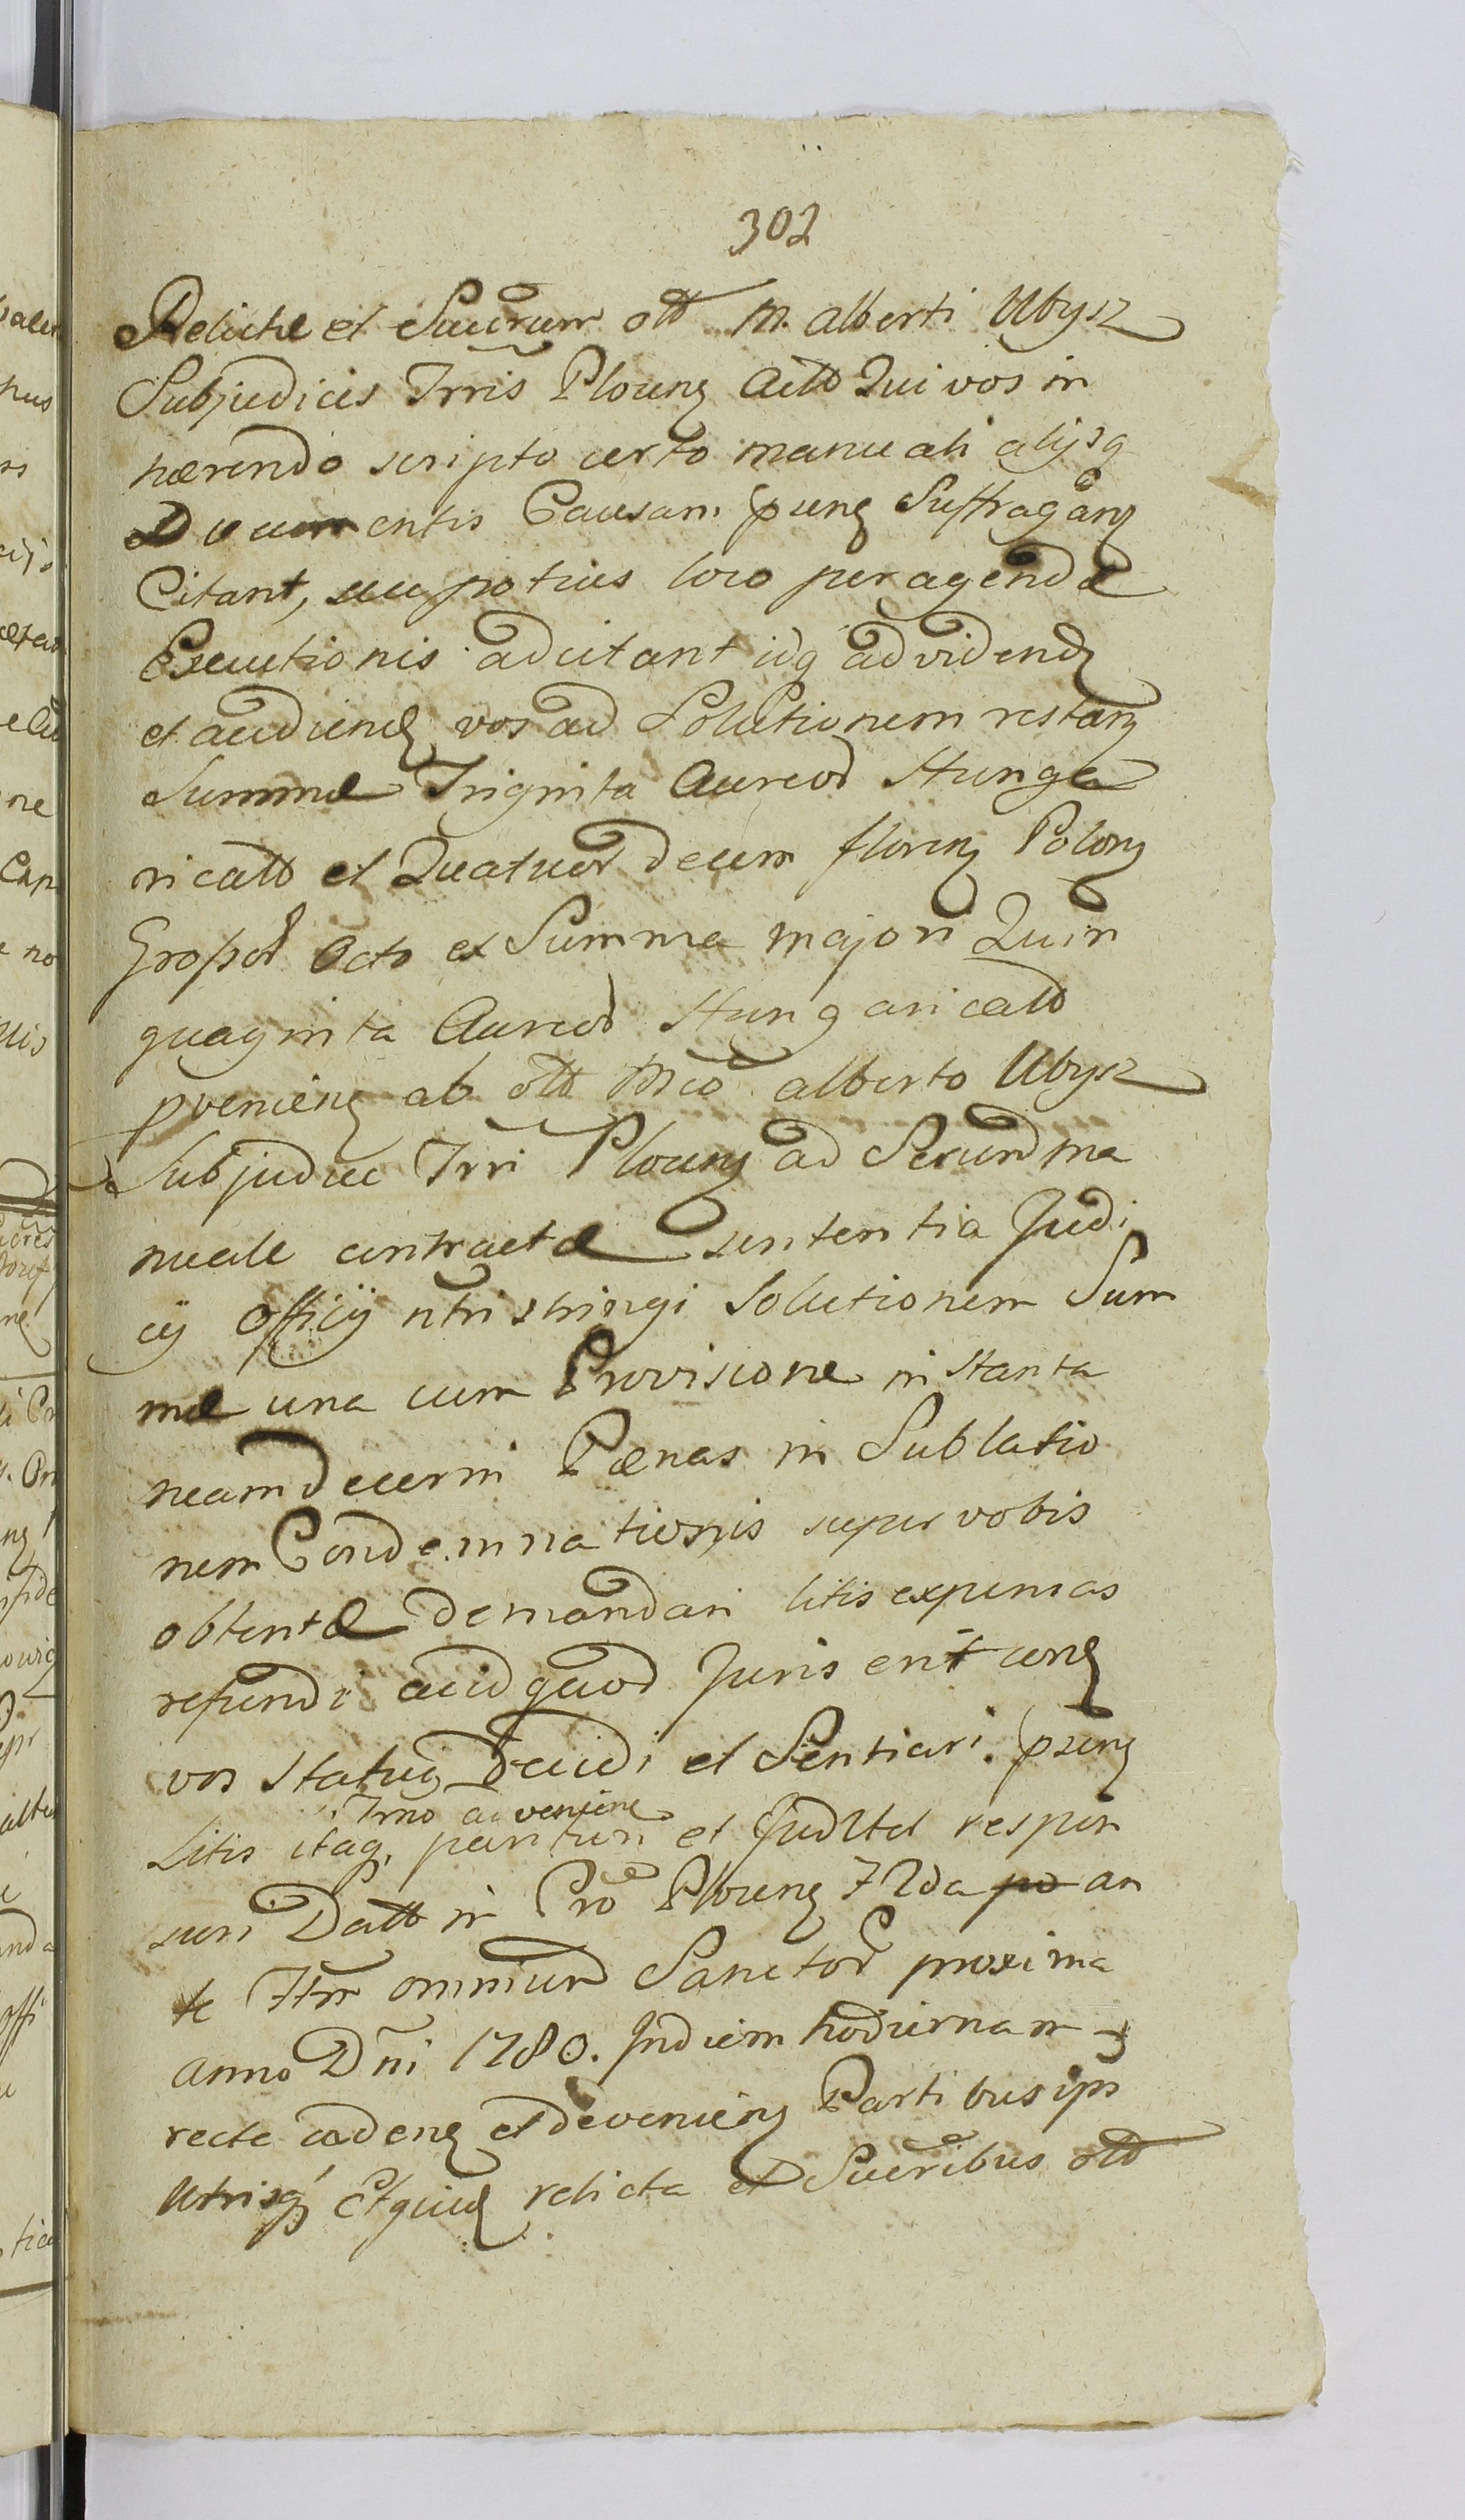 302
Relictæ et Succrum olt M. Alberti Ubysz
Subjudicis Trris Plocens Act Qui vos in
hærendo scripto certo manuali alijsq
Documentis Causam psens Suffragans
Citant, seu potius loco peragendæ
Executionis adcitant idq ad vidend
et audiend vos ad Solutionem restans
Summæ Triginta Aureor Hunga
ricalt et Quatuor decem floren Polon
Grossor Octo ex Summa majori Quin
quaginta Aureor Hungaricalt
pveniens ab olt Mco Alberto Ubysz
Subjudice Trri Plocens ad Secund ma
nuale contractæ sententia Judi
cij Officij ntri stringi Solutionem Sum
mæ una cum Provisione instanta
neam decerni Pænas in Sublatio
nem Condemnationis super vobis
obtentæ demandari litis expensas
refundi aliudquod Juris erit cons
vos statuiq decidi et Sentiari. psens
Trmo adveniente
Litis itaq, parituri et Judltet respon
suri Datt in Cro Plocens 7 2da an
te Ftm omnium Sanctor proxima
Anno Dni 1780. In diem hodiernam
recte cadens et deveniens Partibus ips
Utrisq Et quid relicta et Succribus olt